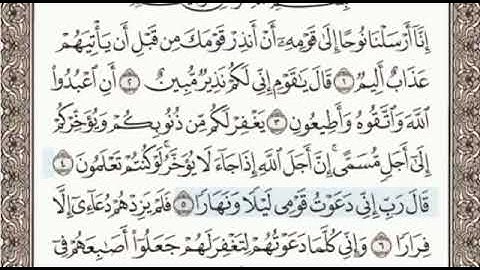 إِنَّآ أَرْسَلْنَا نُوحًا إِلَىٰ قَوْمِهِۦٓ أَنْ أَنذِرْ قَوْمَكَ مِن قَبْلِ أَن يَأْتِيَهُمْ
عَذَابٌ أَلِيمٌ ١ قَالَ يَٰقَوْمِ إِنِّى لَكُمْ نَذِيرٌ مُّبِينٌ ٢ أَنِ ٱعْبُدُوا۟
ٱللَّهَ وَٱتَّقُوهُ وَأَطِيعُونِ ٣ يَغْفِرْ لَكُم مِّن ذُنُوبِكُمْ وَيُؤَخِّرْكُمْ
إِلَىٰٓ أَجَلٍ مُّسَمًّى ۚ إِنَّ أَجَلَ ٱللَّهِ إِذَا جَآءَ لَا يُؤَخَّرُ ۖ لَوْ كُنتُمْ تَعْلَمُونَ ٤
قَالَ رَبِّ إِنِّى دَعَوْتُ قَوْمِى لَيْلًا وَنَهَارًا ٥ فَلَمْ يَزِدْهُمْ دُعَآءِىٓ إِلَّا
فِرَارًا ٦ وَإِنِّى كُلَّمَا دَعَوْتُهُمْ لِتَغْفِرَ لَهُمْ جَعَلُوٓا۟ أَصَٰبِعَهُمْ فِىٓ